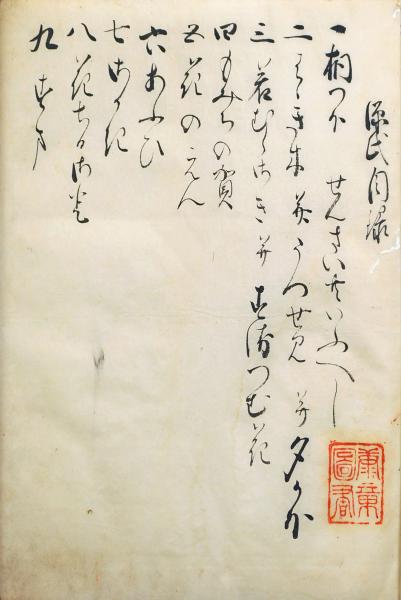 源氏目録
一 桐つほ せんさい共いふへし
二 はゝき木 并 うつせみ 并 夕かほ
三 若むらさき 并 すゑつむ花
四 もみちの賀
五 花のえん
六 あふひ
七 さかき
八 花ちるさと
九 すま